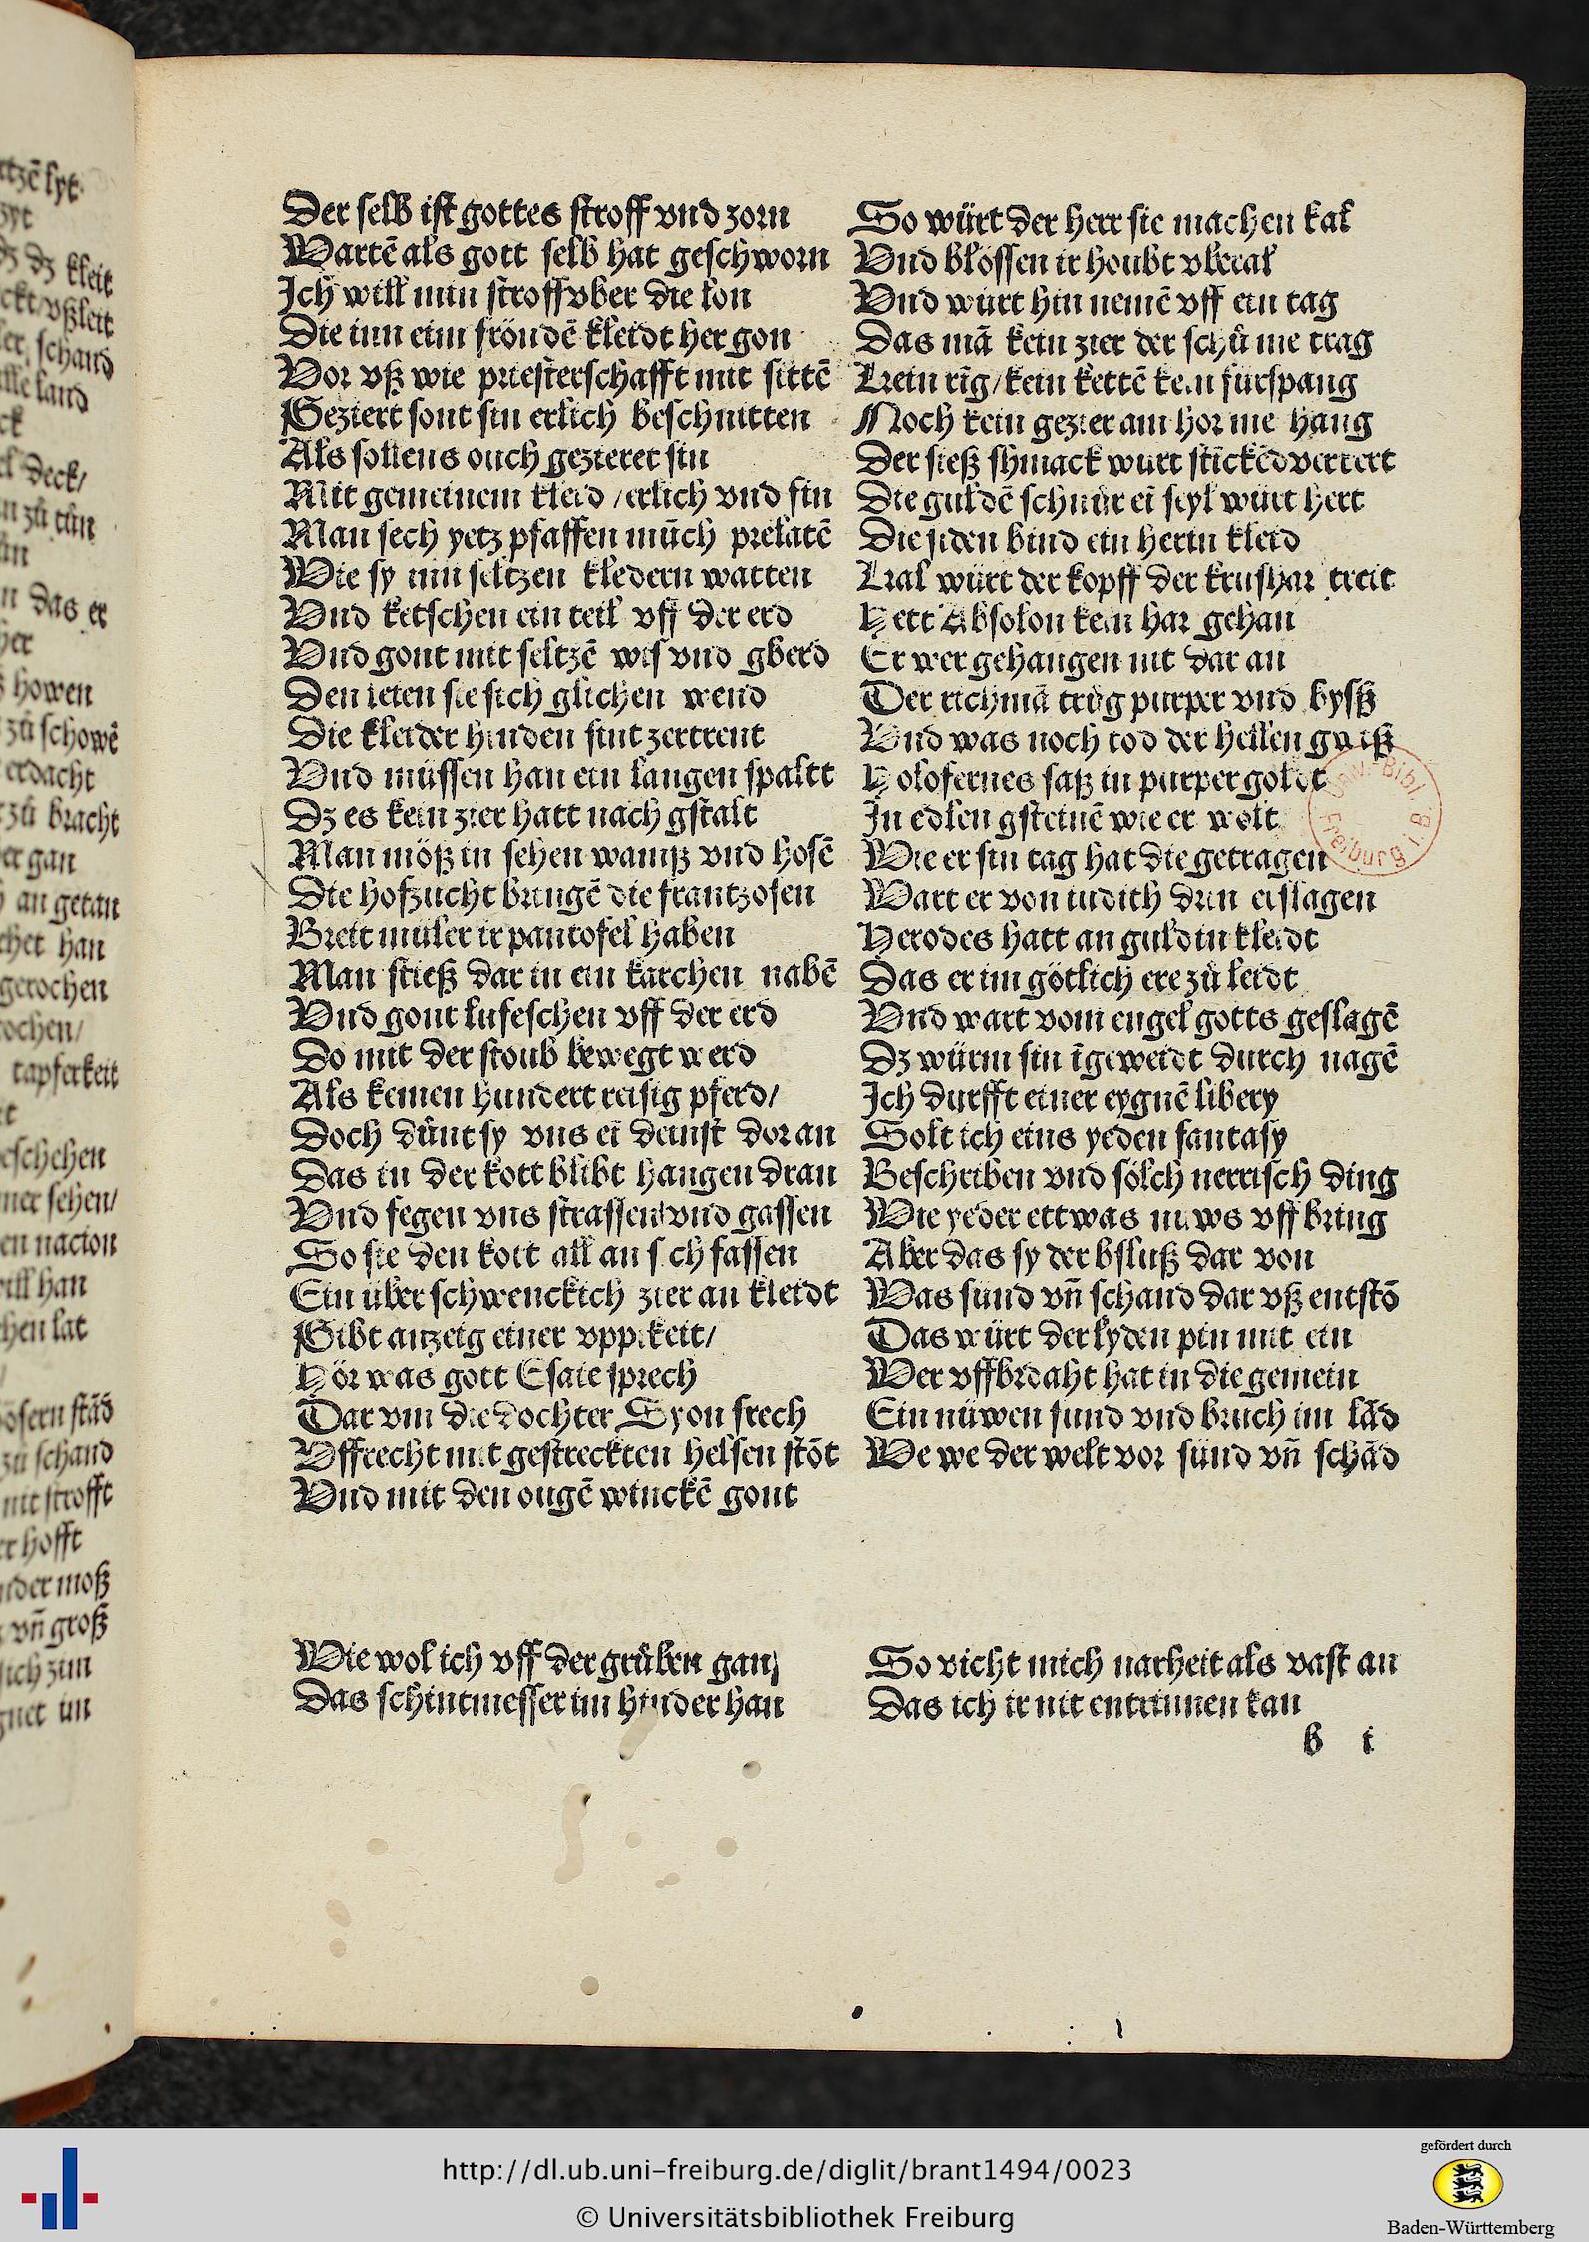 Der selb ist gottes stroff vnd zorn
Wartē als gott selb hat geschworn
Ich will min stroff vber die lon
Die inn eim frömdē kleidt her gon
Vor vß wie priesterschafft mit sittē
Geziert sont sin erlich beschnitten
Als sollens ouch gezieret sin
Mit gemeinem kleid / erlich vnd fin
Man sech yetz pfaffen mūch prelatē
Wie sy inn seltzen kledern watten
Vnd ketschen ein teil vff der erd
Vnd gont mit seltzē wis vnd gberd
Den leien sie sich glichen wend
Die kleider hinden sint zertrent
Vnd müssen han ein langen spaltt
Dz es kein zier hatt nach gstalt
Man möß in sehen wamß vnd hosē
Die hofzucht bringē die frantzosen
Breit müler ir pantofel haben
Man stieß dar in ein karchen nabē
Vnd gont lufeschen vff der erd
Do mit der stoub bewegt werd
Als kemen hundert reisig pferd/
Doch dünt sy vns ei deinst dor an
Das in der kott blibt hangen dran
Vnd fegen vns strassen vnd gassen
So sie den kott all an sich fassen
Ein über schwenckich zier an kleidt
Gibt anzeig einer vppikeit/
Hör was gott Esaie sprech
Dar vm die dochter Syon frech
Vffrecht mit gestreckten helsen stōt
Vnd mit den ougē winckē gont
So würt der herr sie machen kal
Vnd blössen ir houbt vberal
Vnd würt hin nemē vff ein tag
Das mā kein zier der schů me trag
Kein rīg / kein kettē kein fürspang
Noch kein gezier am hor me hang
Der sieß shmack würt stickēd verkert
Die guldē schnür ei seyl würt hert
Die siden bind ein herin kleid
Kal würt der kopff der krushar treit
Hett Absolon kein har gehan
Er wer gehangen nit dar an
Der richmā trůg purper vnd byss
Vnd was noch tod der hellen gwiß
Holofernes saß in purper goldt
In edlen gsteinē wie er wolt
Wie er sin tag hat die getragen
Wart er von iudith drin erslagen
Herodes hatt an guldin kleidt
Das er im götlich ere zů leidt
Vnd wart vom engel gotts geslagē
Dz würm sin īgeweidt durch nagē
Ich durfft einer eygnē libery
Solt ich eins yeden fantasy
Beschriben vnd sölch nerrisch ding
Wie yeder ettwas nüws vff bring
Aber das sy der bsluß dar von
Was sünd vn̄ schand dar vß entstō
Das würt der lyden pin mit ein
Wer vffbrdaht hat in die gemein
Ein nüwen fund vnd bruch im lād
We we der welt vor sünd vn̄ schād
Wie wol ich vff der grüben gan
Das schintmesser im hinder han
So vicht mich narheit als vast an
Das ich ir nit entrinnen kan
b i
Univ. Bibl.
Freiburg i. B
http://dl.ub.uni-freiburg.de/diglit/brant1494/0023
© Universitätsbibliothek Freiburg
gefördert durch
Baden-Württemberg